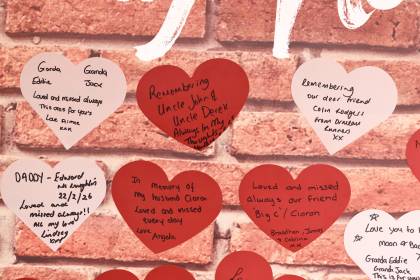 Granda Granda
Eddie Jack
Loved and missed always
This one's for yous
Love Aimee
xxx
Remembering
Uncle John &
Uncle Derek
Always In My
Thoughts
Remembering
our dear friend
Colin Rodgers
From
xx
DADDY - Edward
22/2/26
Loved and
missed always!!
All my love
In memory of
my husband Ciaran
Loved and missed
every day
Love Angela
Loved and missed
always our friend
Big C / Ciaran
Bradellan, James
& Catrina
xxx
Love you to
moon & Ba
Granda Eddie
Granda Jack
This is for you